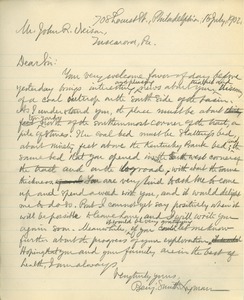 708 Locust St., Philadelphia, 15 July, 1902.
Mr. John R.
Tuscarora, Pa.
Dear Sir:
Your very welcome favor of day before
yesterday brings interesting news about your
of a coal outcrop on the south side of the basin.
As I understand you, it place must be about
feet north of the southernmost corner of the tract, on a
pile of stones. The coal bed must be Slattery's bed,
about ninety feet above the Kentucky Bank bed; the
same bed that you opened in the west corner of
the tract and on the road, with about the same
thickness. You are very kind to ask me to come
up and spend a week with you, and it would delight
me to do so. But I cannot yet say positively when it
will be possible to leave here, and I will write you
again soon. Meanwhile, if you could let me know
further about the progress of your exploration
Hoping that you and your family are in the best of
health, I am always
Very truly yours,
Benj. Smith Lyman.